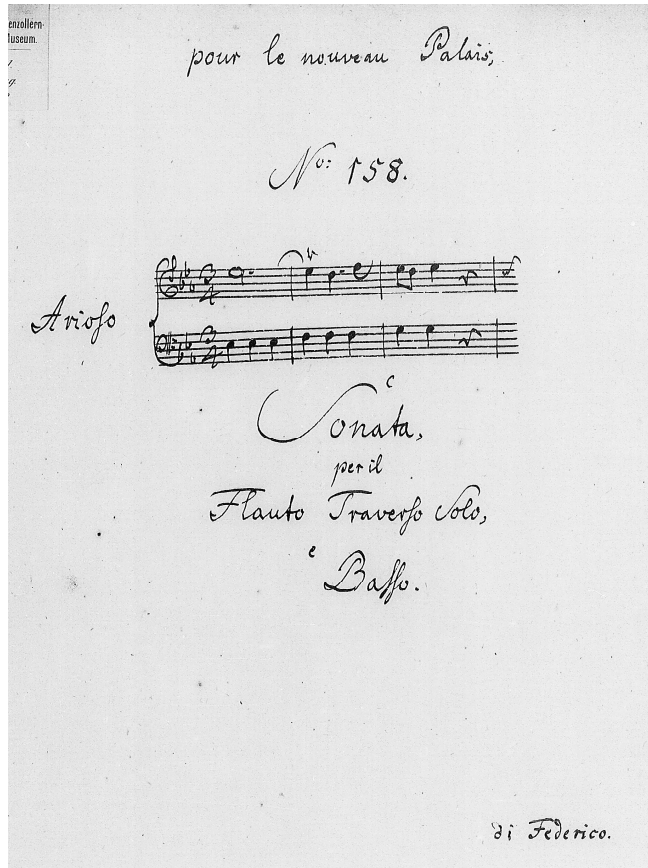 enzollern-
Museum.
pour le nouveau Palais,
No: 158.
Arioso
3 3
4 4
c
Sonata,
per il
Flauto Traverso Solo,
e
Basso.
di Federico.